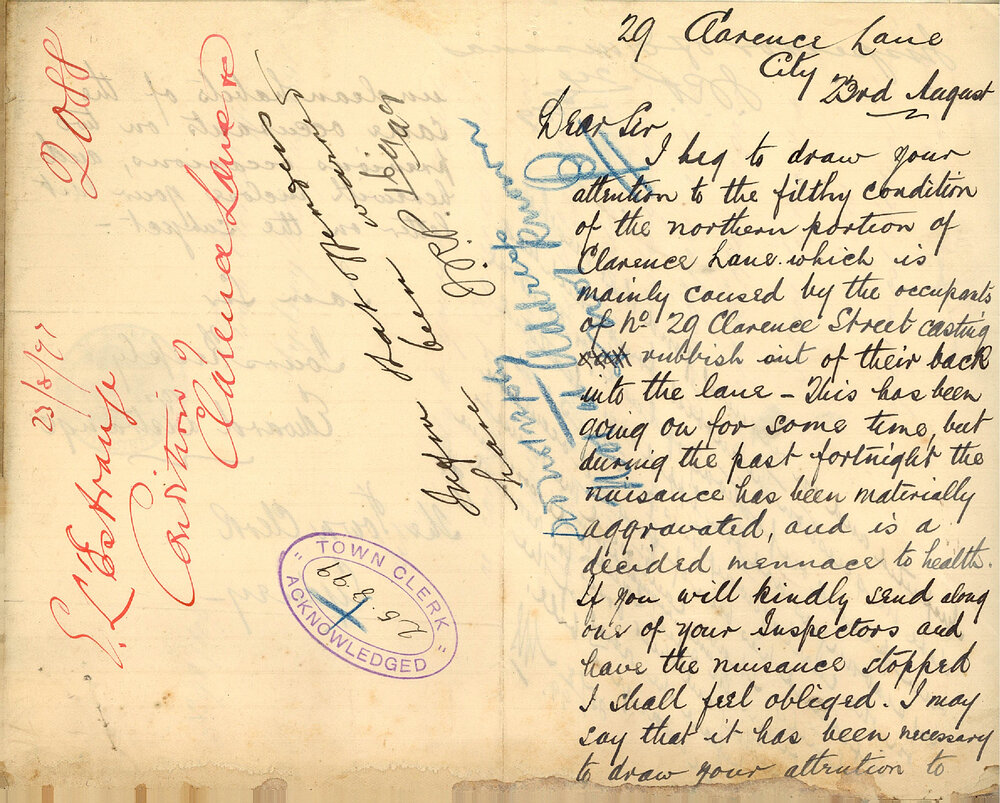 29 Clarence Lane
City
23rd August
Dear Sir
I beg to draw your
attention to the filthy condition
of the northern portion of
Clarence Lane. which is
mainly caused by the occupants
of No 29 Clarence Street casting
rubbish out of their back
into the lane – This has been
going on for some time, but
during the past fortnight the
nuisance has been materially
aggravated, and is a
decided mennace to health.
If you will kindly send along
one of your Inspectors and
have the nuisance stopped
I shall feel obliged. I may
say that it has been necessary
to draw your attention to
2088
23/8/97
E. L'Estrange
Condition of
Clarence Lane
Inform that offenders
have been warned
J.R.P.
"TOWN CLERK"
25.8.99
ACKNOWLEDGED